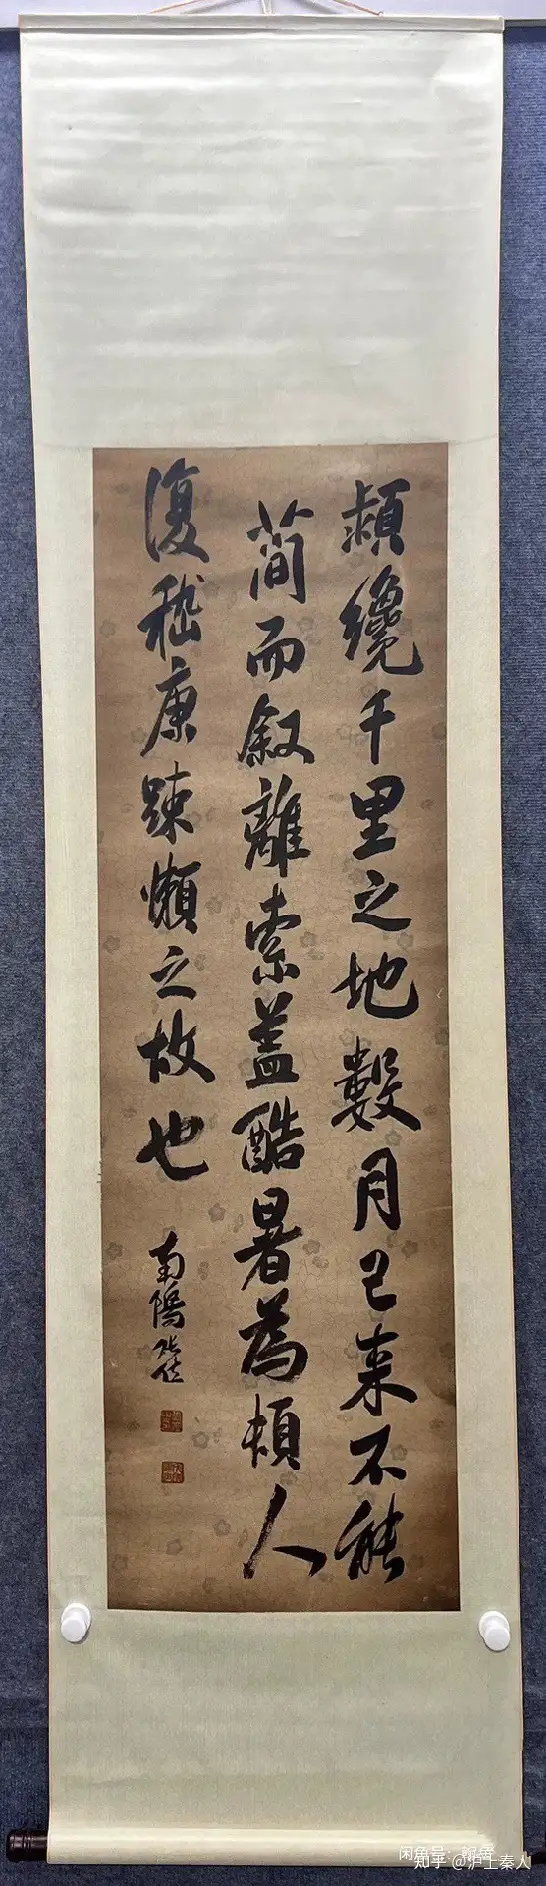 纔千里之地數月已来不能
蕳而叙離索蓋酷暑為人
復嵇康踈懶之故也
南陽
闲鱼号:
知乎 @沪上秦人